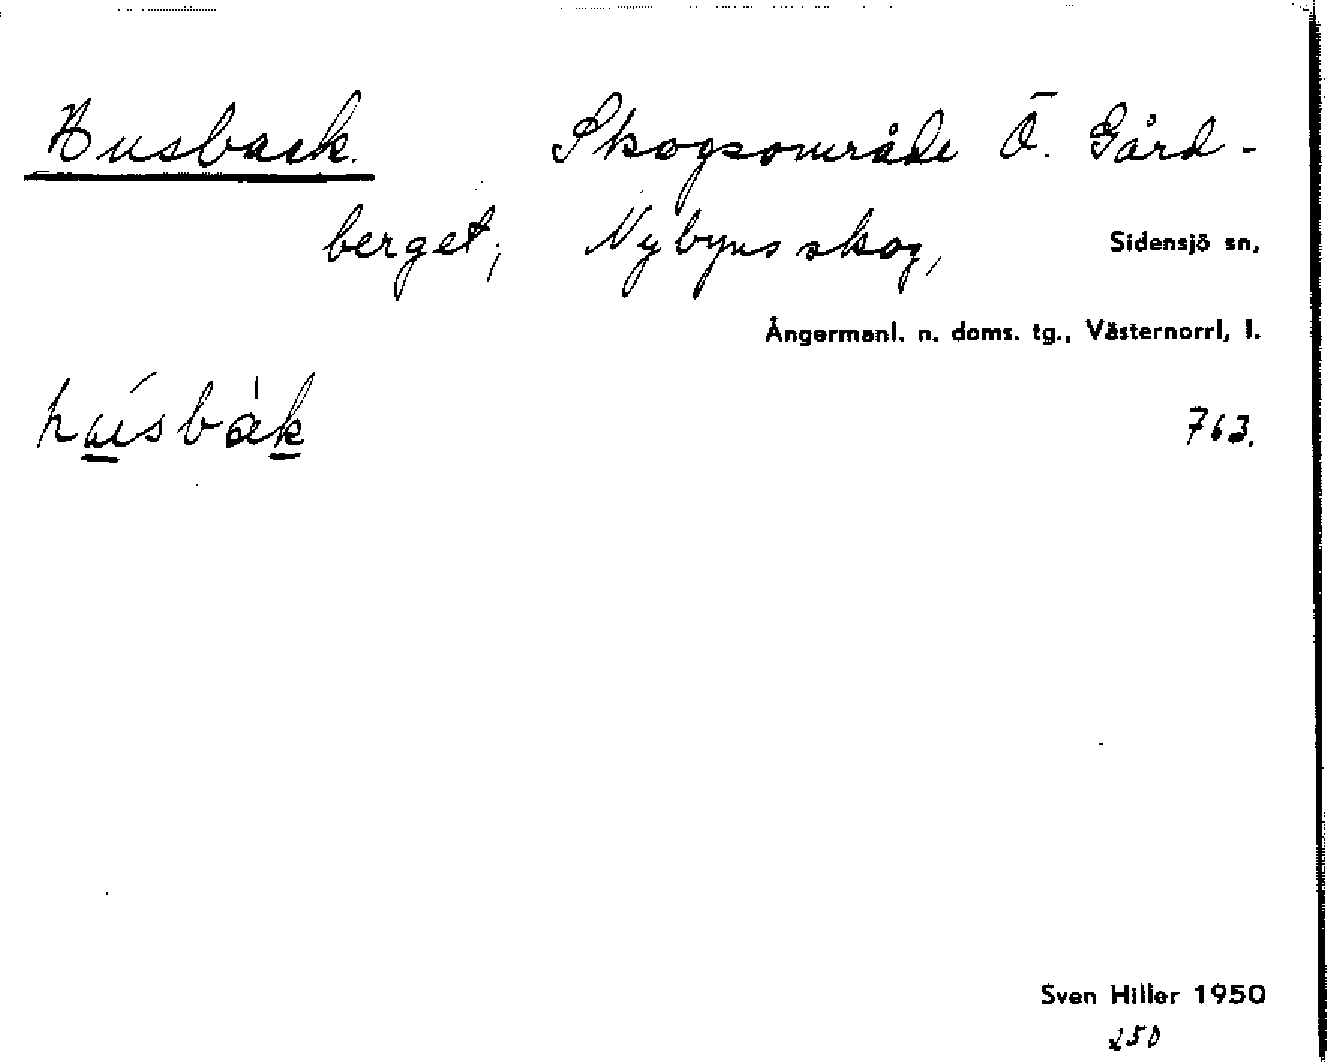 Husback. Skogsområde Ö. Gård-
berget, Nybyns skog, Sidensjö sn,
Ångermanl. n. doms. tg., Västernorrl, l.
763.
Sven Hiller 1950
250